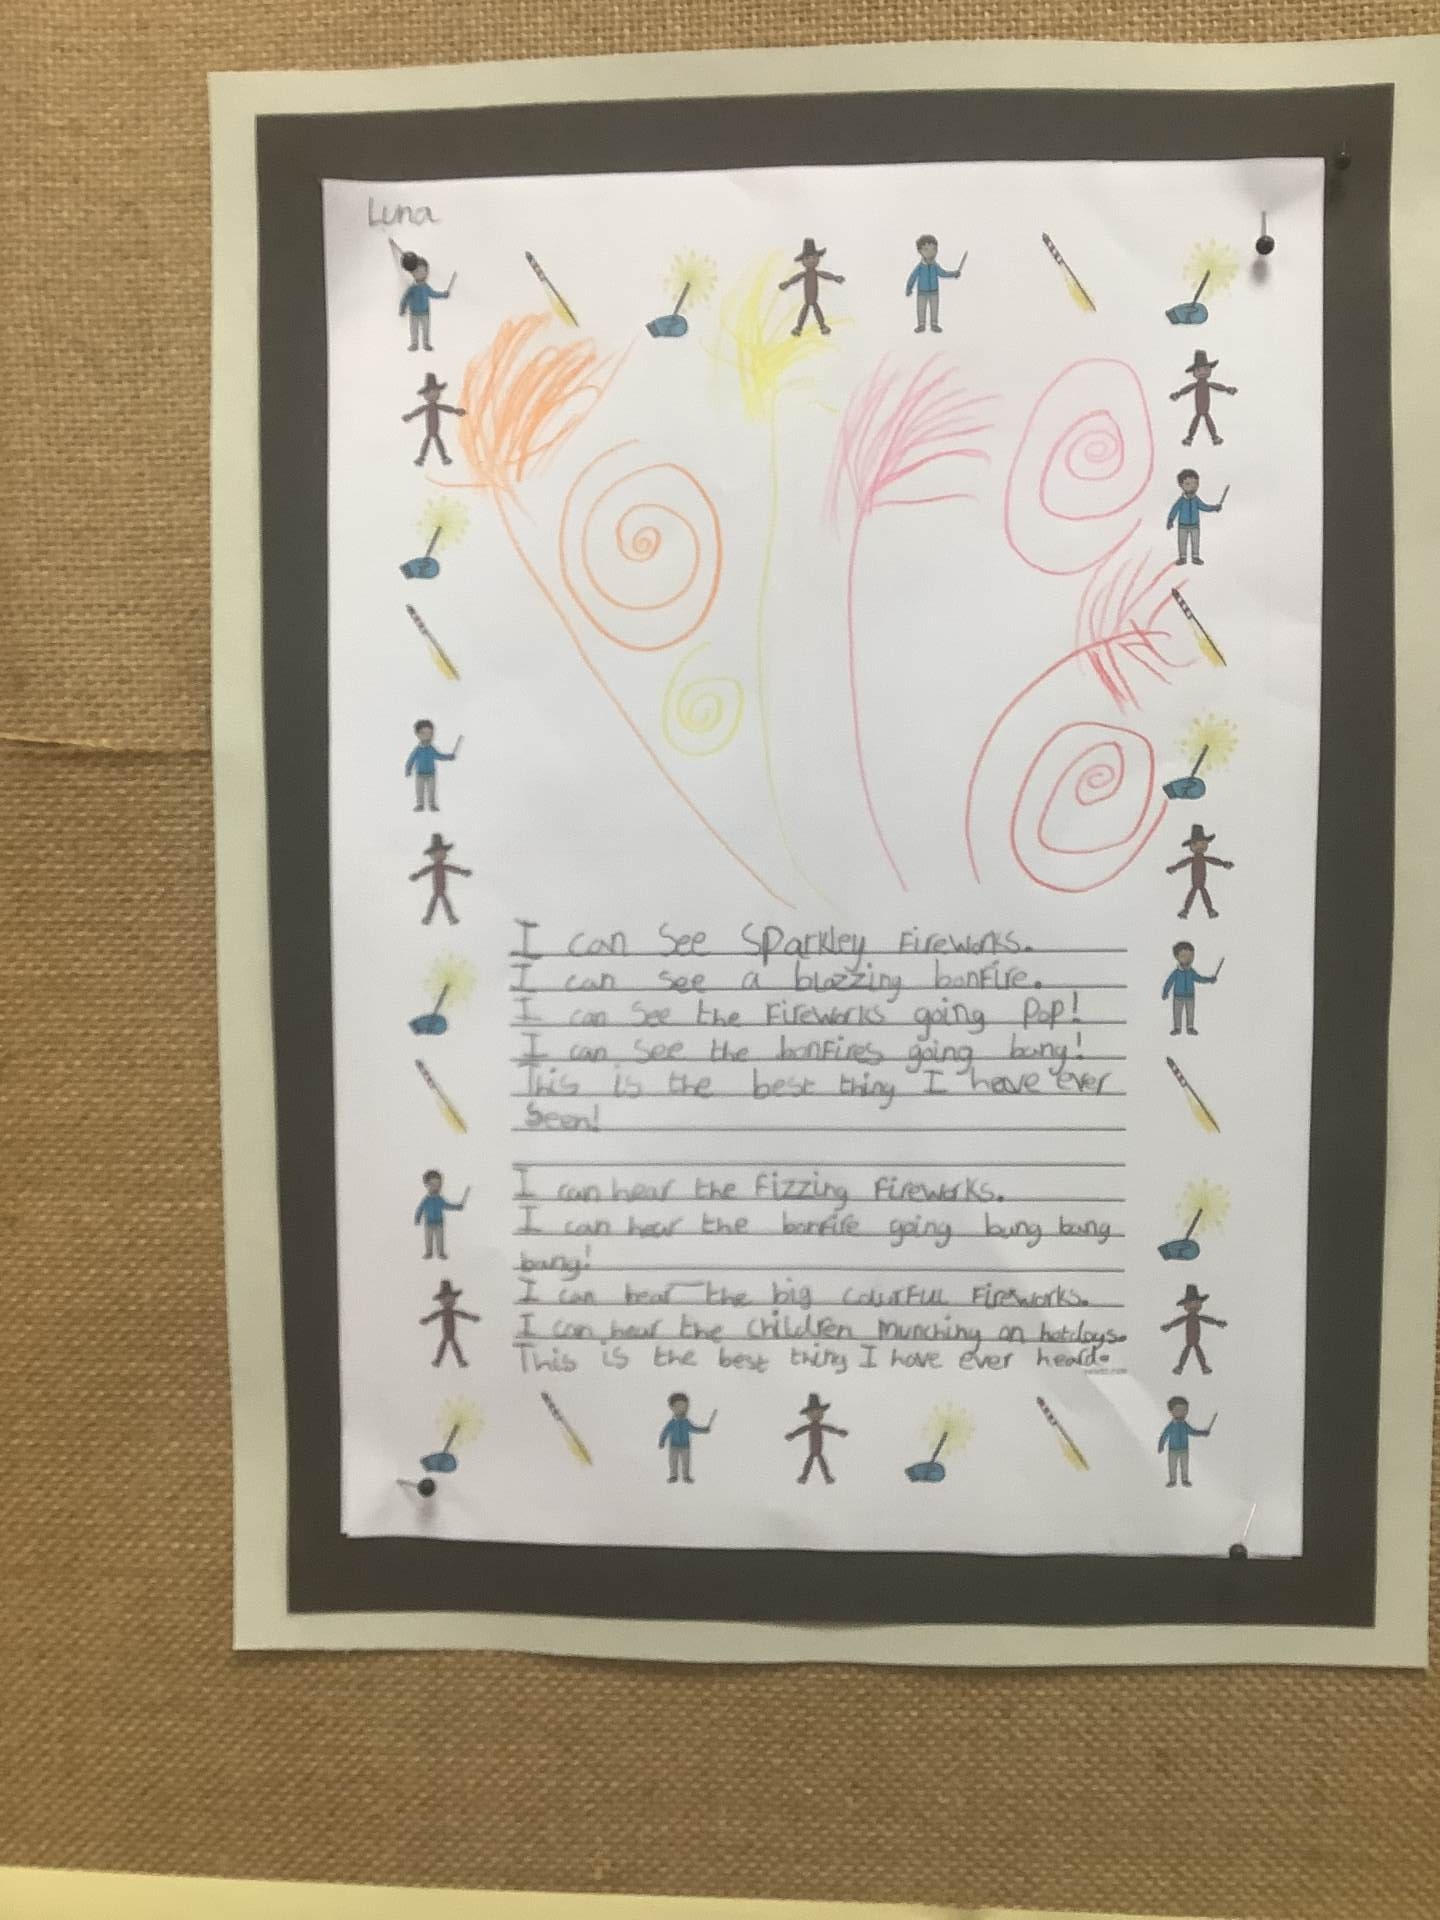 Luna
I can see sparkley fireworks.
I can see a blazzing bonfire.
I can see the fireworks going pop!
I can see the bonfires going bang!
This is the best thing I have ever
seen!
I can hear the fizzing fireworks.
I can hear the bonfire going bang bang
bang!
I can hear the big colurfull fireworks.
I can hear the children munching on hotdogs.
This is the best thing I have ever heard.